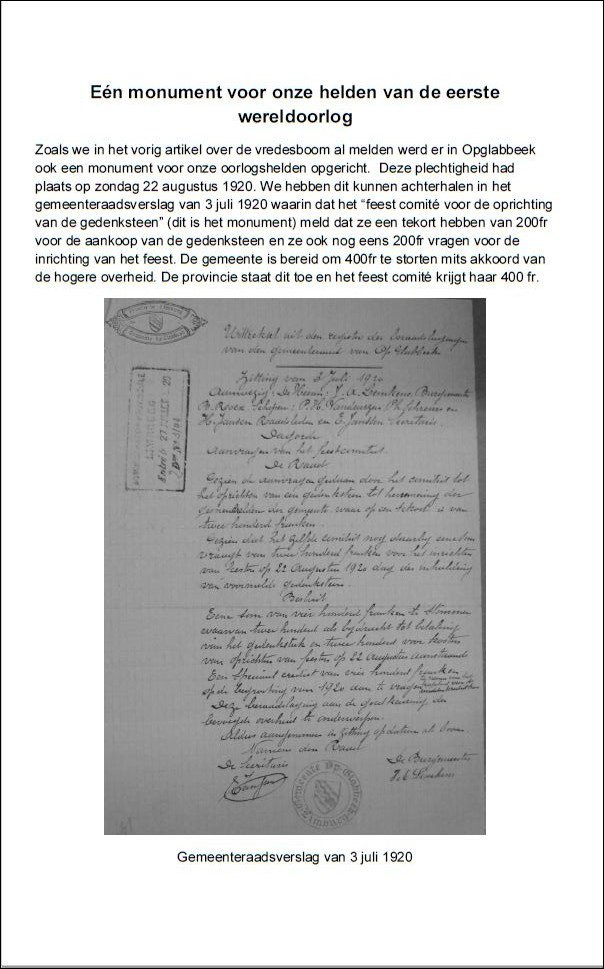 Eén monument voor onze helden van de eerste
wereldoorlog
Zoals we in het vorig artikel over de vredesboom al melden werd er in Opglabbeek
ook een monument voor onze oorlogshelden opgericht. Deze plechtigheid had
plaats op zondag 22 augustus 1920. We hebben dit kunnen achterhalen in het
gemeenteraadsverslag van 3 juli 1920 waarin dat het “feest comité voor de oprichting
van de gedenksteen” (dit is het monument) meld dat ze een tekort hebben van 200fr
voor de aankoop van de gedenksteen en ze ook nog eens 200fr vragen voor de
inrichting van het feest. De gemeente is bereid om 400fr te storten mits akkoord van
de hogere overheid. De provincie staat dit toe en het feest comité krijgt haar 400 fr.
Uittreksel uit den register der beraadslagingen
van den gemeenteraad van Op Glabbeek
Zitting van 3 Juli 1920
Aanwezig: De Heeren: J. A. Lemkens, Burgemeester
Schepen; P. H.
H. Jansen Raadsleden en Secretaris.
Dagorde
Aanvragen van het feestcomiteit.
De Raad
Gezien de aanvragen gedaan door het comiteit tot
het oprichten van een gedenksteen tot herinnering der
gesneuvelden der gemeente waar op een tekort is van
twee honderd franken.
Gezien dat het zelfde comiteit nog daarbij eene som
vraagt van twee honderd franken voor het inrichten
van feesten op 22 Augustus 1920 dag der onthulling
van voormelde gedenksteen.
Besluit
Eene som van vier honderd franken te stemmen
waarvan twee honderd als bijdracht tot betaling
van het gedenkstuk en twee honderd voor kosten
van oprichten van feesten op 22 Augustus aanstaande
Een Speciaal crediet van vier honderd franken
op de Begrooting van 1920 aan te vragen
Deze beraadslaging aan de goedkeuring der
bevoegde overheid te onderwerpen.
Aldus aangenomen in zitting op datum als boven
Namens den Raad
De Secretaris
De Burgemeester
Gemeenteraadsverslag van 3 juli 1920